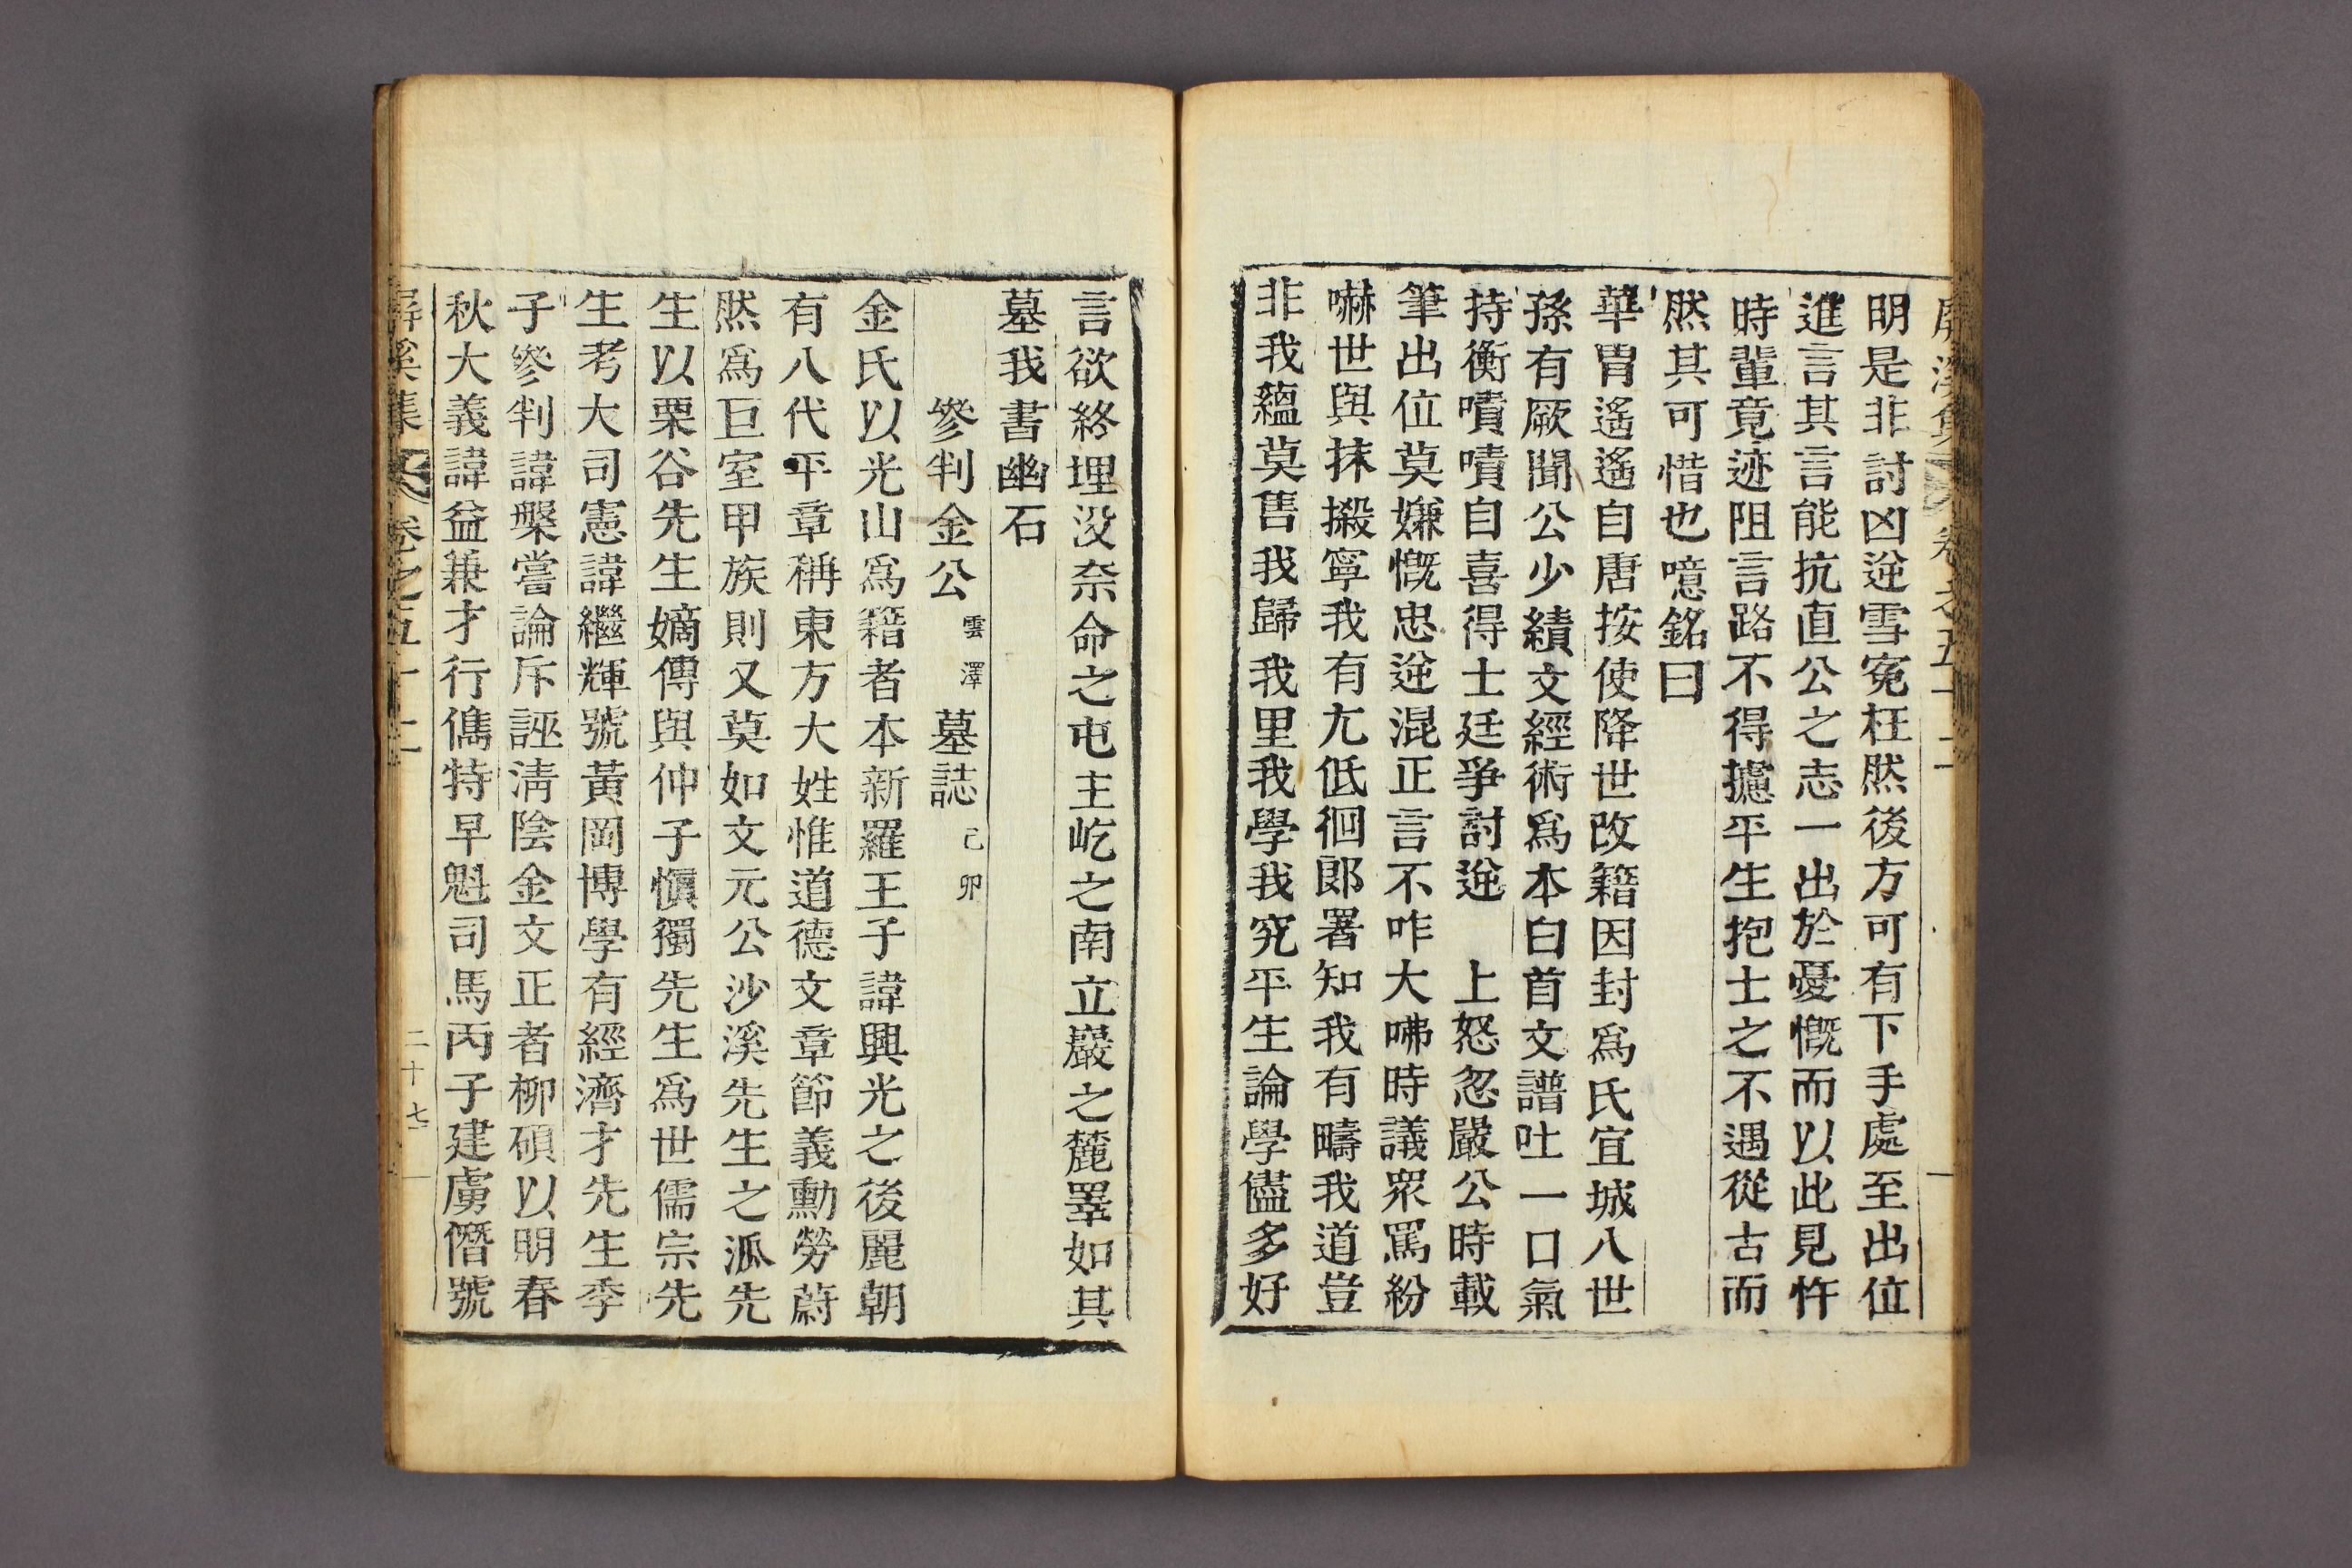 屛溪集 卷之五十二
明是非討凶逆雪寃枉然後方可有下手處至出位
進言其言能抗直公之志一出於憂慨而以此見忤
時輩竟迹阻言路不得攄平生抱士之不遇從古而
然其可惜也噫銘曰
華胄遙遙自唐按使降世改籍因封爲氏宜城八世
孫有厥聞公少績文經術爲本白首文譜吐一口氣
持衡嘖嘖自喜得士廷爭討逆 上怒忽嚴公時載
筆出位莫嫌慨忠逆混正言不咋大咈時議衆罵紛
嚇世與抹摋寧我有亢低徊郞署知我有疇我道豈
非我蘊莫售我歸我里我學我究平生論學儘多好
言欲終埋没奈命之屯主屹之南立巖之麓睪如其
墓我書幽石
參判金公雲澤墓誌己卯
金氏以光山爲籍者本新羅王子諱興光之後麗朝
有八代平章稱東方大姓惟道德文章節義勳勞蔚
然爲巨室甲族則又莫如文元公沙溪先生之派先
生以栗谷先生嫡傳與仲子愼獨先生爲世儒宗先
生考大司憲諱繼輝號黃岡博學有經濟才先生季
子參判諱槃嘗論斥誣淸陰金文正者柳碩以明春
秋大義諱益兼才行儁特早魁司馬丙子建虜僭號
屛溪集 卷之五十二 二十七